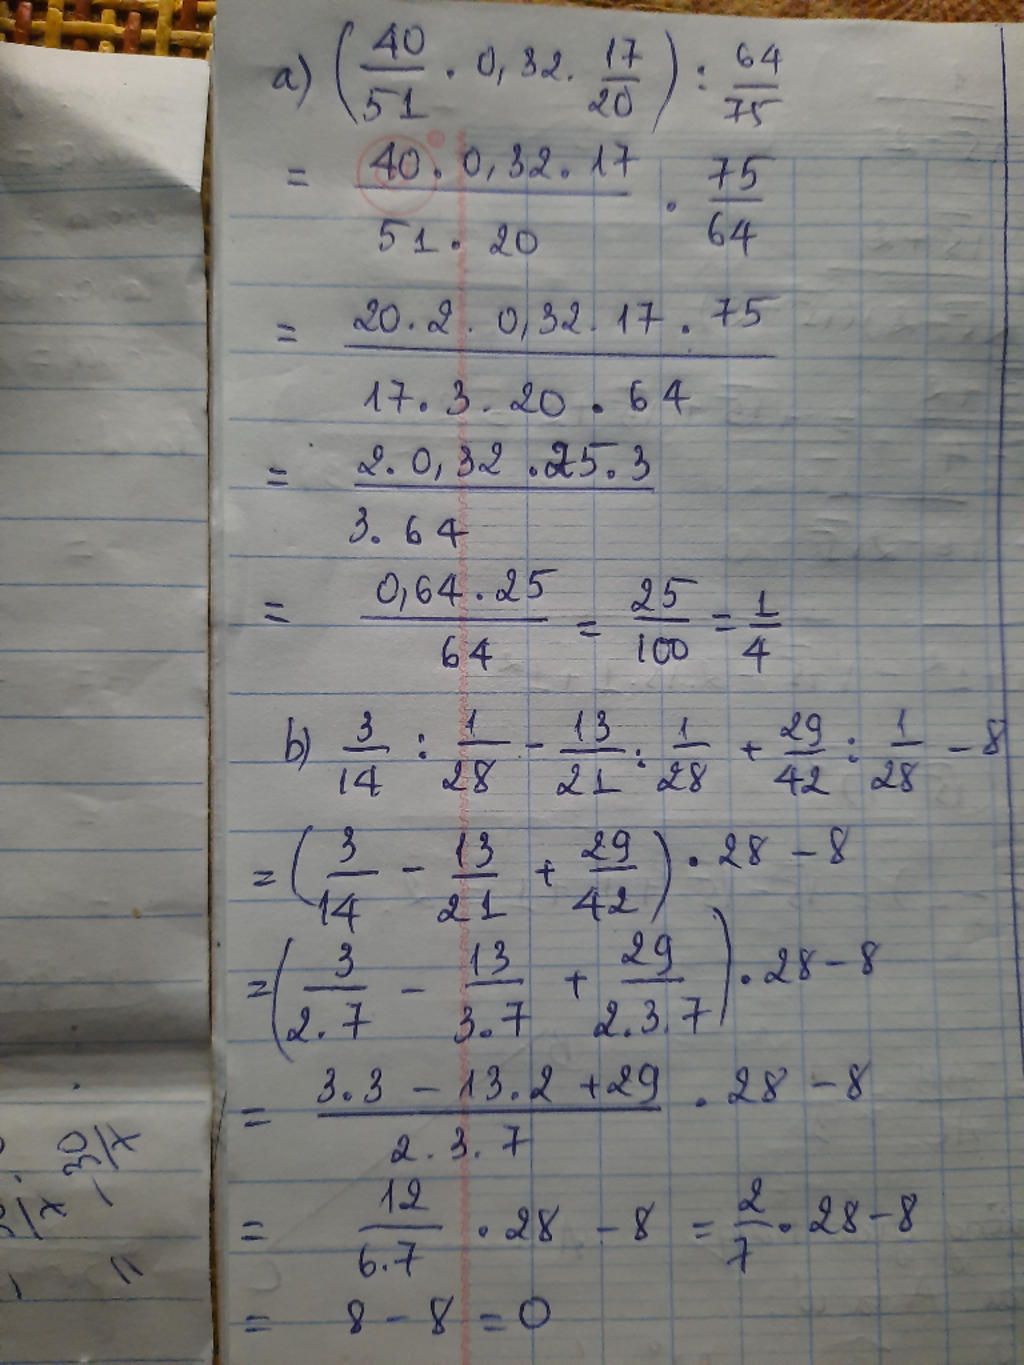 a) (40/51 . 0,32 . 17/20) : 64/75
= (40 . 0,32 . 17)/(51 . 20) . 75/64
= (20 . 2 . 0,32 . 17 . 75)/(17 . 3 . 20 . 64)
= (2 . 0,32 . 25 . 3)/(3 . 64)
= (0,64 . 25)/64 = 25/100 = 1/4
b) 3/14 : 1/28 - 13/21 : 1/28 + 29/42 : 1/28 - 8
= (3/14 - 13/21 + 29/42) . 28 - 8
= (3/(2.7) - 13/(3.7) + 29/(2.3.7)) . 28 - 8
= (3.3 - 13.2 + 29)/(2.3.7) . 28 - 8
= 12/(6.7) . 28 - 8 = 2/7 . 28 - 8
= 8 - 8 = 0